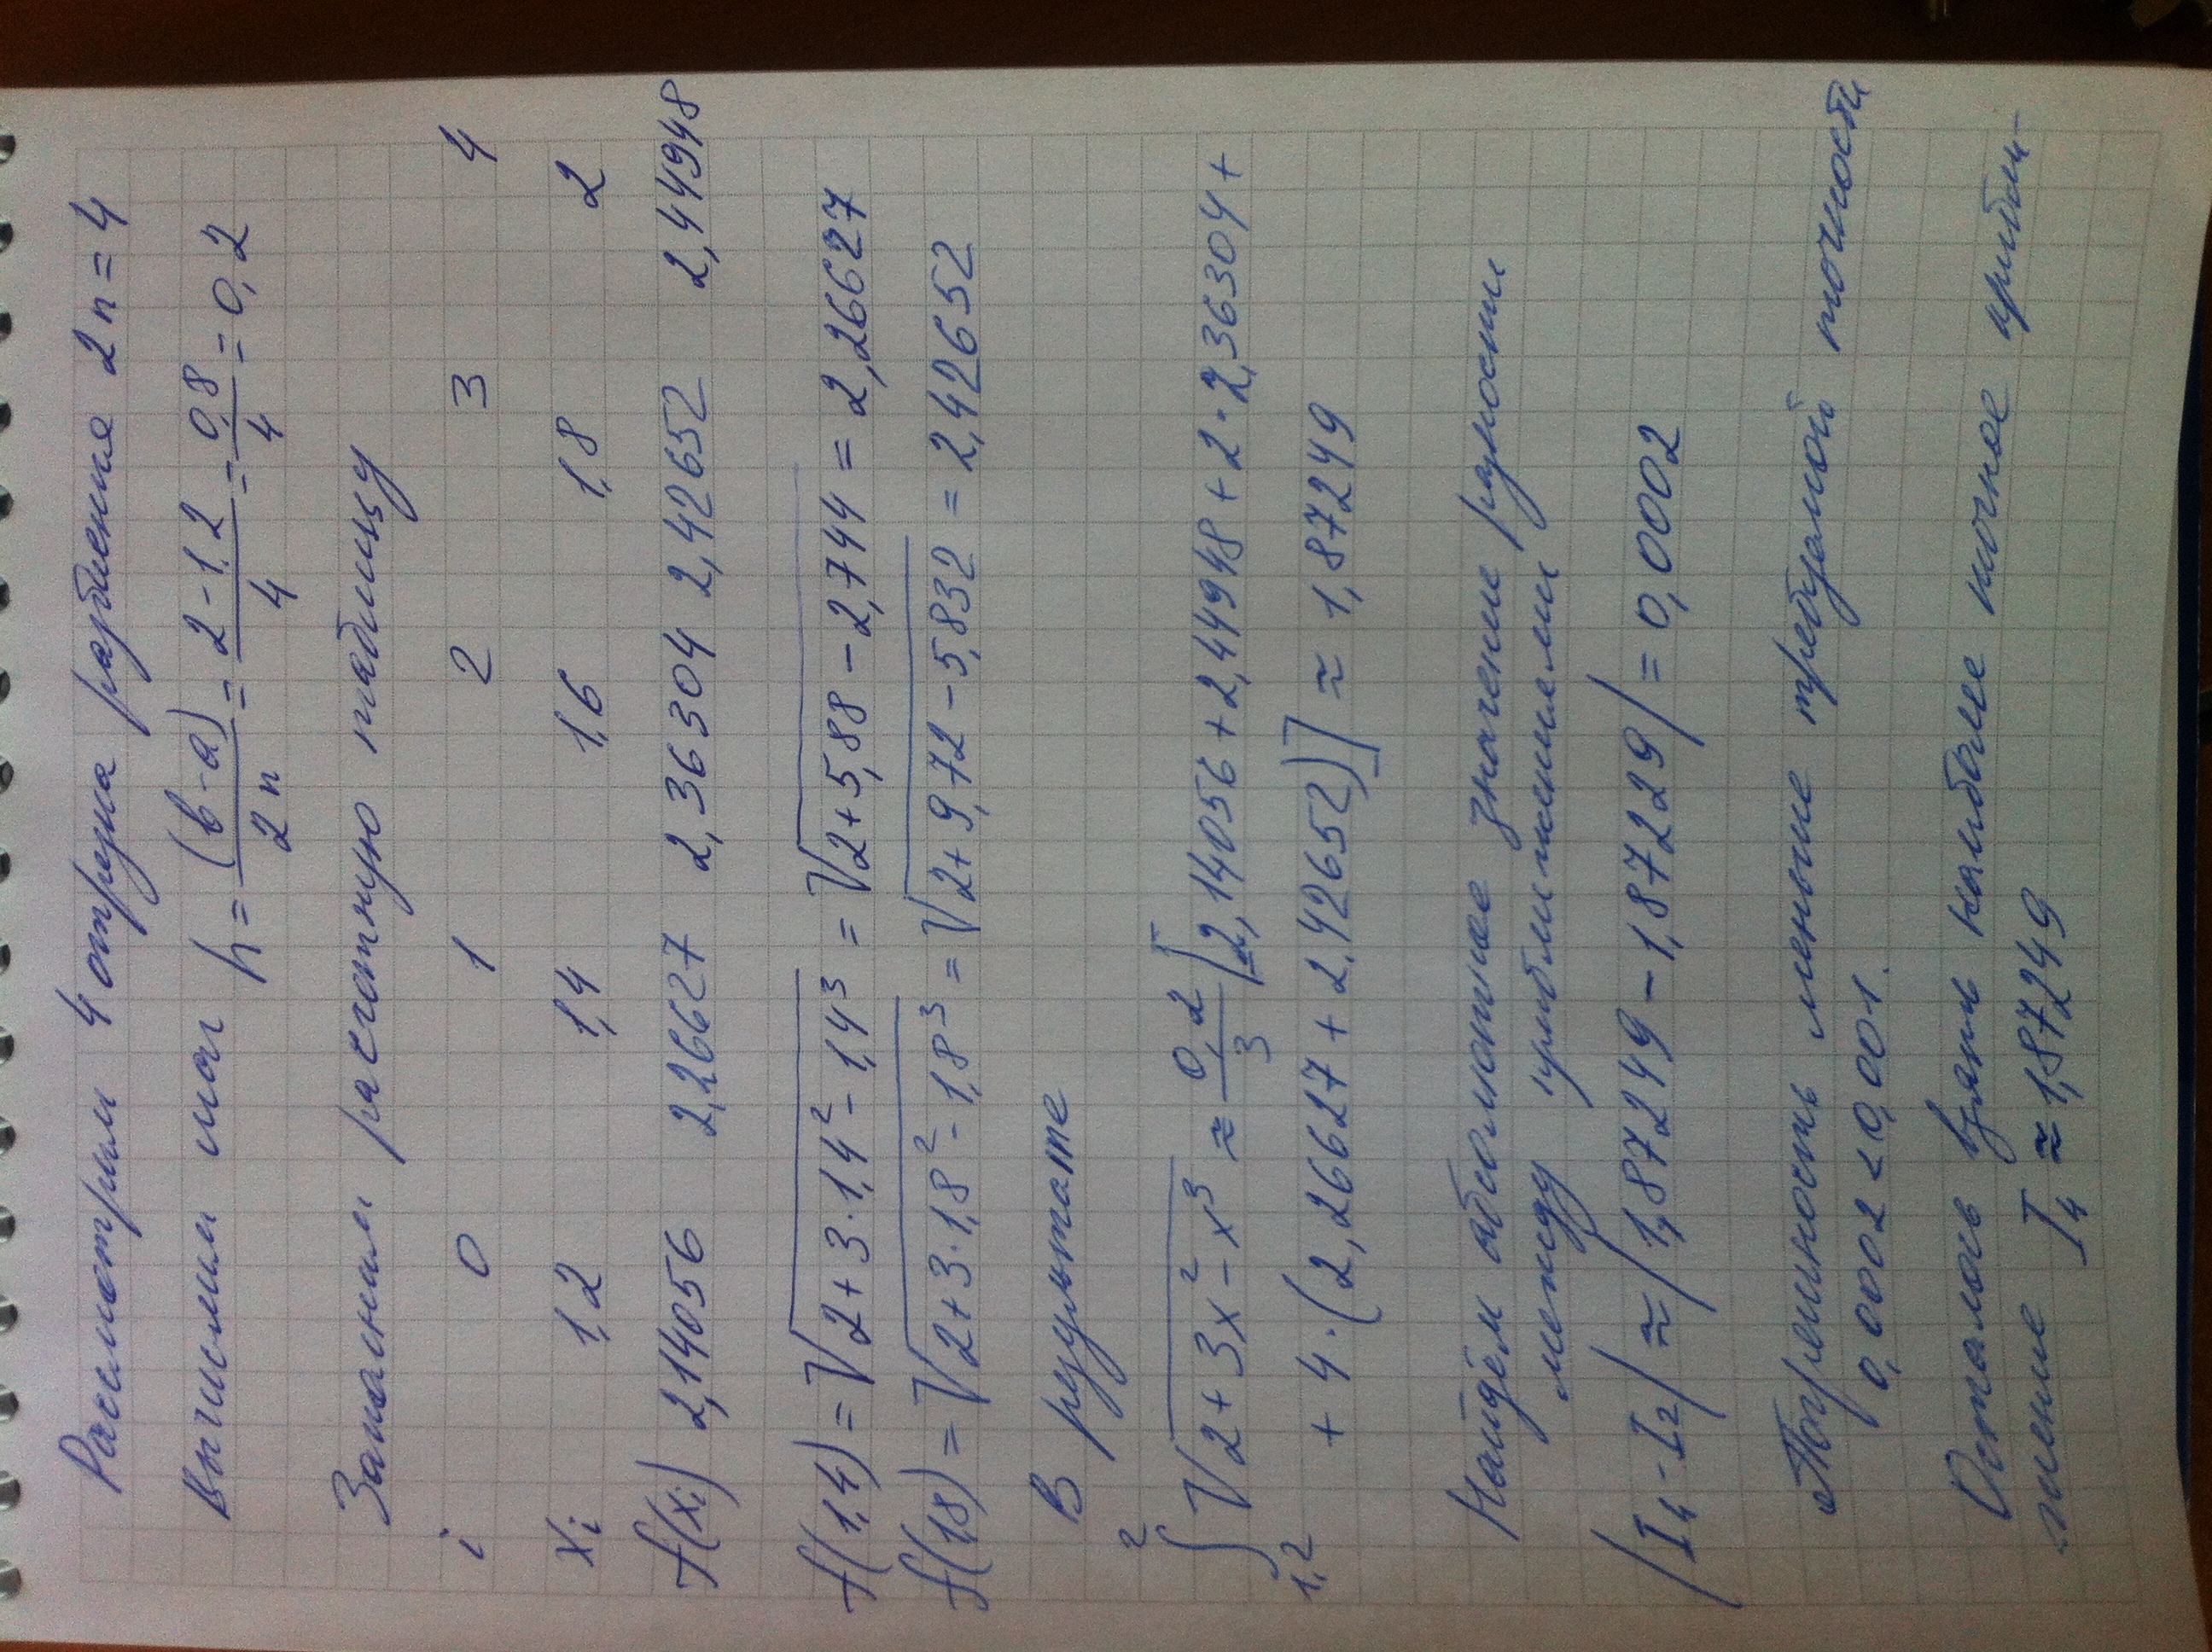 Рассмотрим 4 отрезка разбиения 2n = 4
Вычислим шаг h = (b-a)/2n = (2-1,2)/4 = 0,8/4 = 0,2
Заполним расчётную таблицу
i 0 1 2 3 4
xi 1,2 1,4 1,6 1,8 2
f(xi) 2,14056 2,26627 2,36304 2,42652 2,44948
f(1,4) = √(2+3·1,4²-1,4³) = √(2+5,88-2,744) = 2,26627
f(1,8) = √(2+3·1,8²-1,8³) = √(2+9,72-5,832) = 2,42652
В результате
∫₁,₂² √(2+3x²-x³) ≈ 0,2/3 [2,14056+2,44948+2·2,36304+
+4·(2,26627+2,42652)] ≈ 1,87249
Найдём абсолютное значение разности
между приближениями
|I₄-I₂| ≈ |1,87249-1,87229| = 0,0002
Погрешность меньше требуемой точности
0,0002 < 0,001.
Осталось взять наиболее точное прибли-
жение I₄ ≈ 1,87249